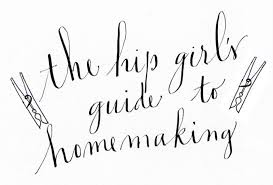 the hip girl's
guide to
homemaking